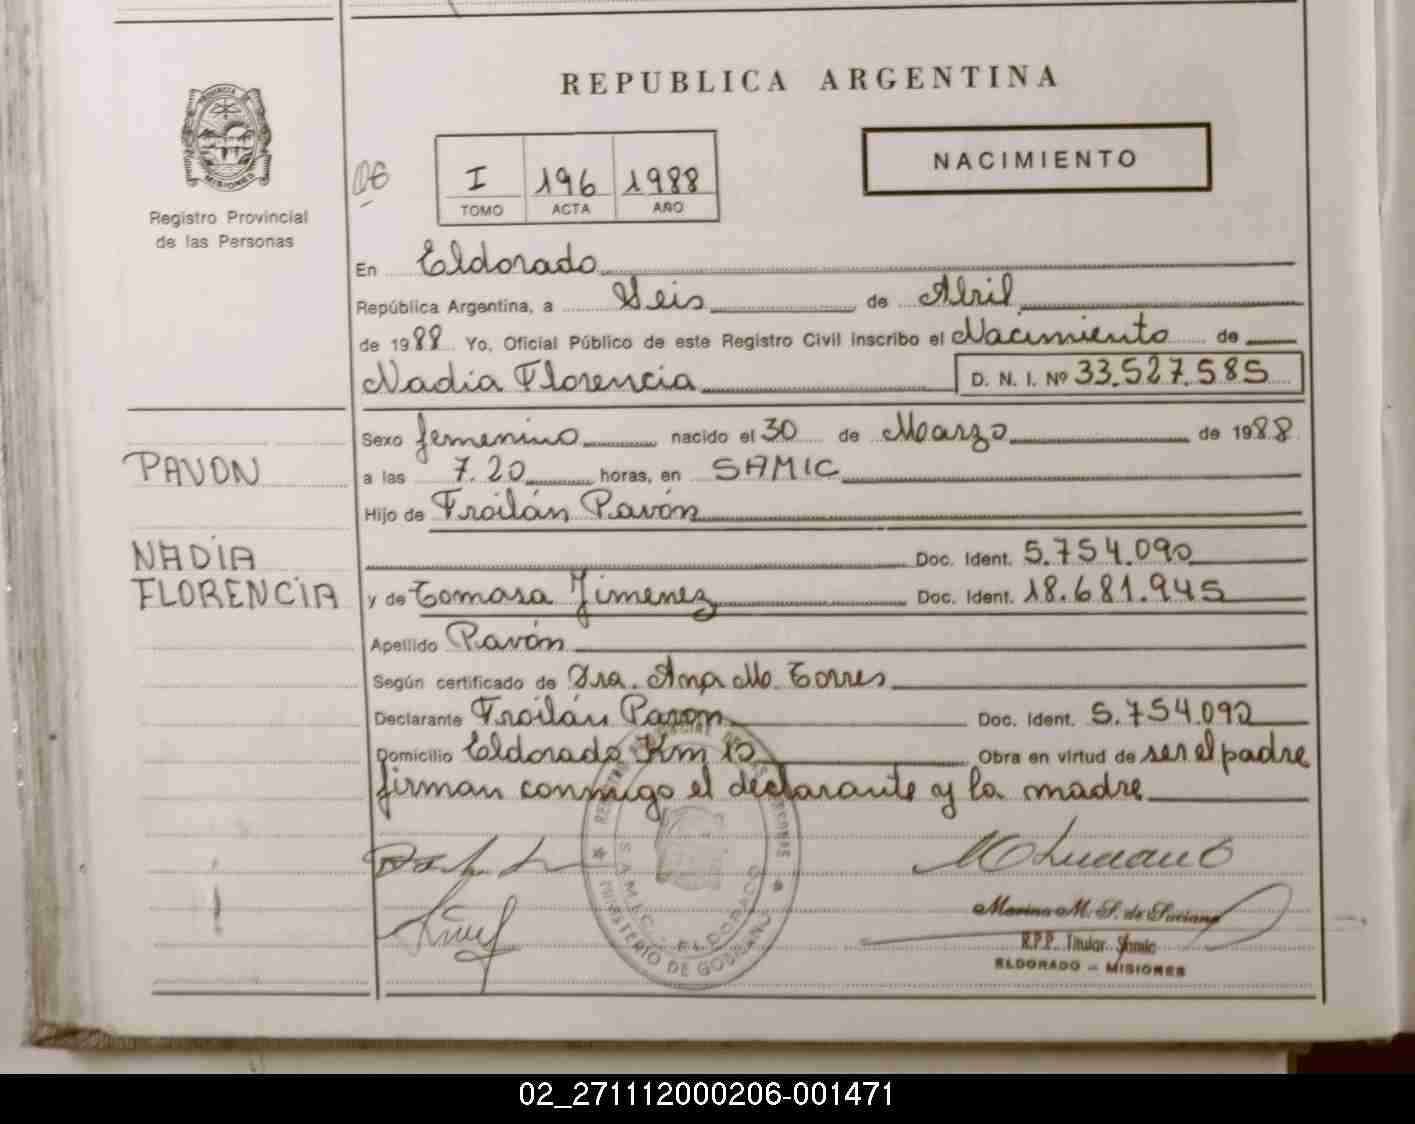 REPUBLICA ARGENTINA
NACIMIENTO
PROVINCIA DE MISIONES
Registro Provincial
de las Personas
06
I 196 1988
TOMO ACTA AÑO
En Eldorado
República Argentina, a Seis de Abril
de 1988 Yo, Oficial Público de este Registro Civil inscribo el Nacimiento de
Nadia Florencia D. N. I. Nº 33.527.585
Sexo femenino nacido el 30 de Marzo de 1988
PAVON
a las 7.20 horas, en SAMIC
Hijo de Froilán Pavón
NADIA
Doc. Ident. 5.754.090
FLORENCIA
y de Tomasa Jimenez Doc. Ident. 18.681.945
Apellido Pavón
Según certificado de Dra. Ana M. Torres
Declarante Froilán Pavon Doc. Ident. 5.754.092
Domicilio Eldorado Km 10 Obra en virtud de ser el padre
firman conmigo el declarante y la madre
S.A.M.I.C. - ELDORADO
MINISTERIO DE GOBIERNO
Marina M. S. de Luciano
R.P.P. Titular Samic
ELDORADO - MISIONES
02_271112000206-001471